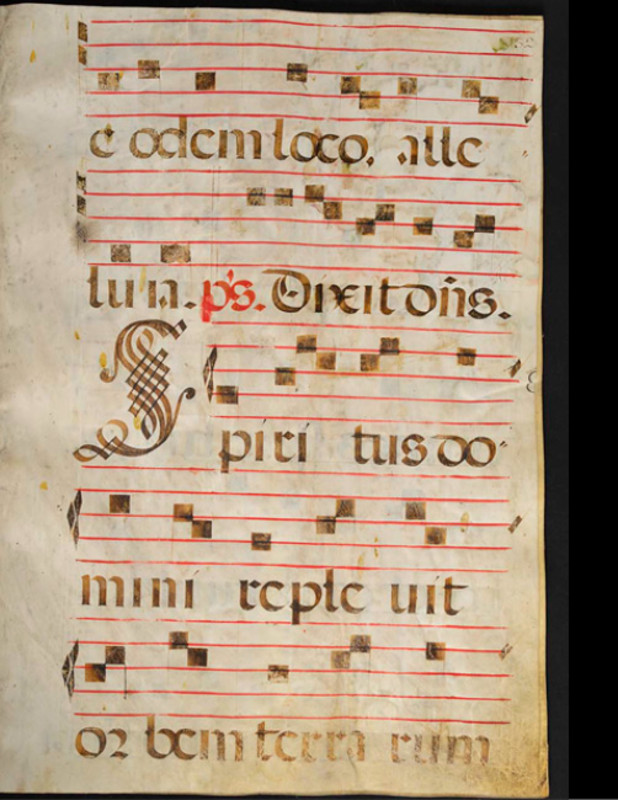 e odem loco, alle
luia. ps. Dixit dñs.
Spiri tus do
mini reple uit
or bem terra rum